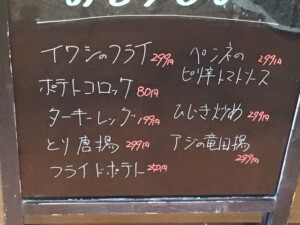 イワシのフライ 299円
ポテトコロッケ 80円
ターキーレッグ 199円
とり唐揚 299円
フライドポテト 250円
ペンネの 299円
ピリ辛トマトソース
ひじき炒め 299円
アジの竜田揚
299円